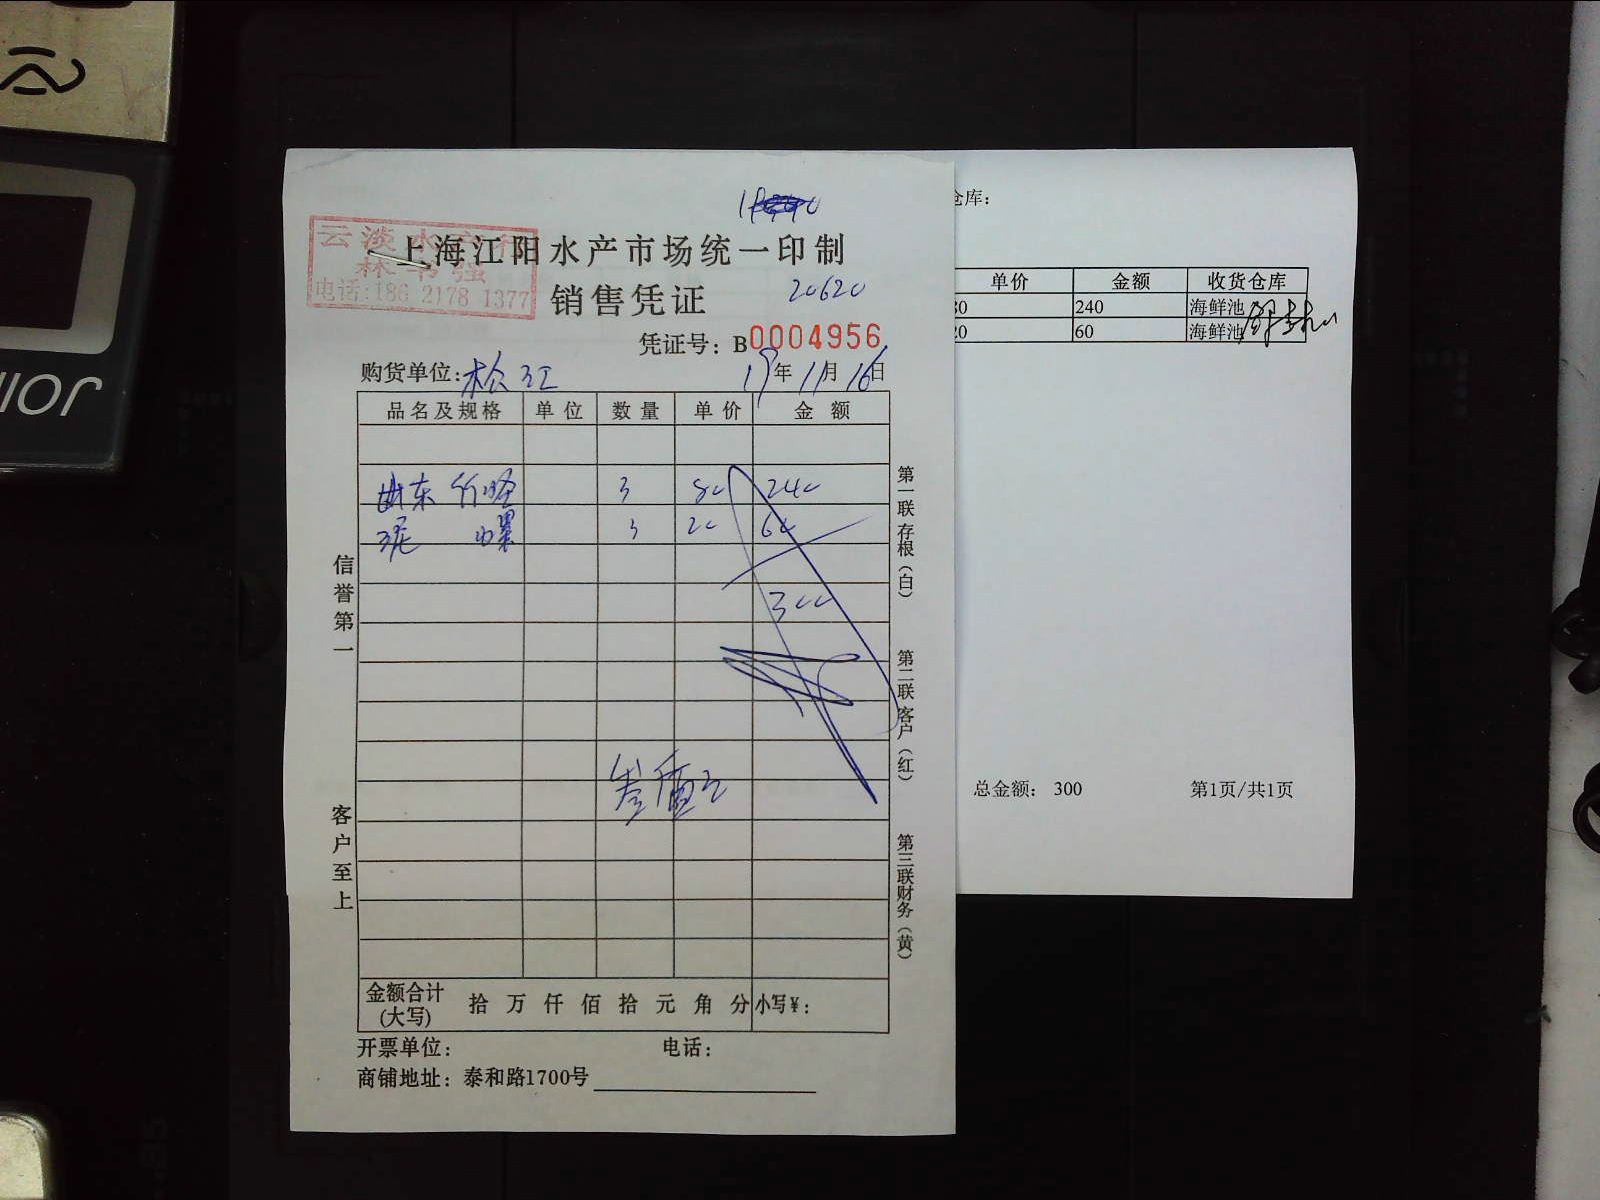 上海江阳水产市场统一印制
云淡水产行
林书强
电话:186 2178 1377
销售凭证
20620
凭证号: B0004956
购货单位: 松江 19年11月16日
品名及规格 单位 数量 单价 金额
山东 3 80 240
泥螺 3 20 60
300
信誉第一
客户至上
第一联存根(白)
第二联客户(红)
第三联财务(黄)
金额合计(大写) 拾 万 仟 佰 拾 元 角 分 小写¥:
开票单位: 电话:
商铺地址: 泰和路1700号
仓库:
单价 金额 收货仓库
80 240 海鲜池
20 60 海鲜池
总金额: 300 第1页/共1页
JOINIOR